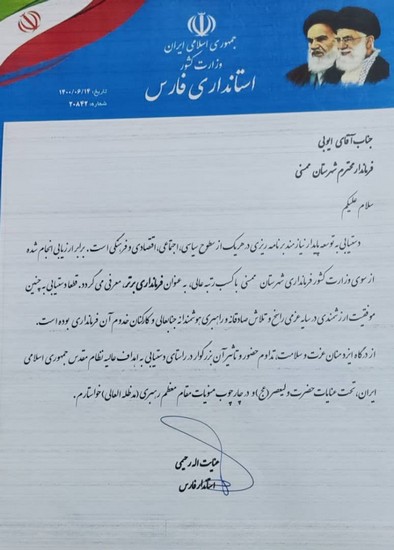 جمهوری اسلامی ایران
وزارت کشور
استانداری فارس
تاریخ: ۱۴۰۰/۰۶/۱۴
شماره: ۲۰۸۴۲
جناب آقای ایوبی
فرماندار محترم شهرستان ممسنی
سلام علیکم
دستیابی به توسعه پایدار نیازمند برنامه ریزی در هریک از سطوح سیاسی، اجتماعی، اقتصادی و فرهنگی است. برابر ارزیابی انجام شده
از سوی وزارت کشور فرمانداری شهرستان ممسنی با کسب رتبه عالی، به عنوان فرمانداری برتر، معرفی می گردد. قطعا دستیابی به چنین
موفقیت ارزشمندی در سایه عزمی راسخ و تلاش صادقانه و راهبری هوشمندانه جنابعالی و کارکنان خدوم آن فرمانداری بوده است.
از درگاه ایزد منان عزت و سلامت، تداوم حضور و تاثیر آن بزرگوار در راستای دستیابی به اهداف عالیه نظام مقدس جمهوری اسلامی
ایران، تحت عنایات حضرت ولیعصر (عج) و در چارچوب منویات مقام معظم رهبری (مدظله العالی) خواستارم.
عنایت اله رحیمی
استاندار فارس